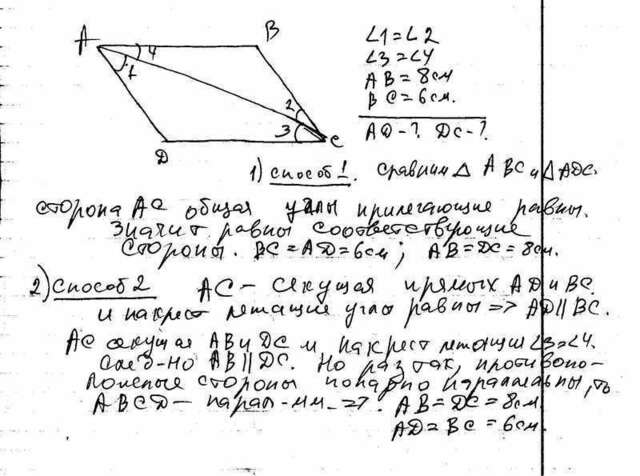 A
B
4
1
2
3
C
D
∠1=∠2
∠3=∠4
AB=8см
BC=6см.
AD-? DC-?
1) способ 1. сравним △ ABC и △ ADC.
сторона AC общая углы прилегающие равны.
Значит равны соответствующие
стороны. BC=AD=6см; AB=DC=8см.
2) способ 2 AC- секущая прямых AD и BC.
и накрест лежащие углы равны => AD || BC.
AC секущая AB и DC и накрест лежащие ∠3=∠4.
след-но AB || DC. Но раз так, противопо-
ложные стороны попарно параллельны, то
ABCD- парал-мм => AB=DC=8см
AD=BC=6см.